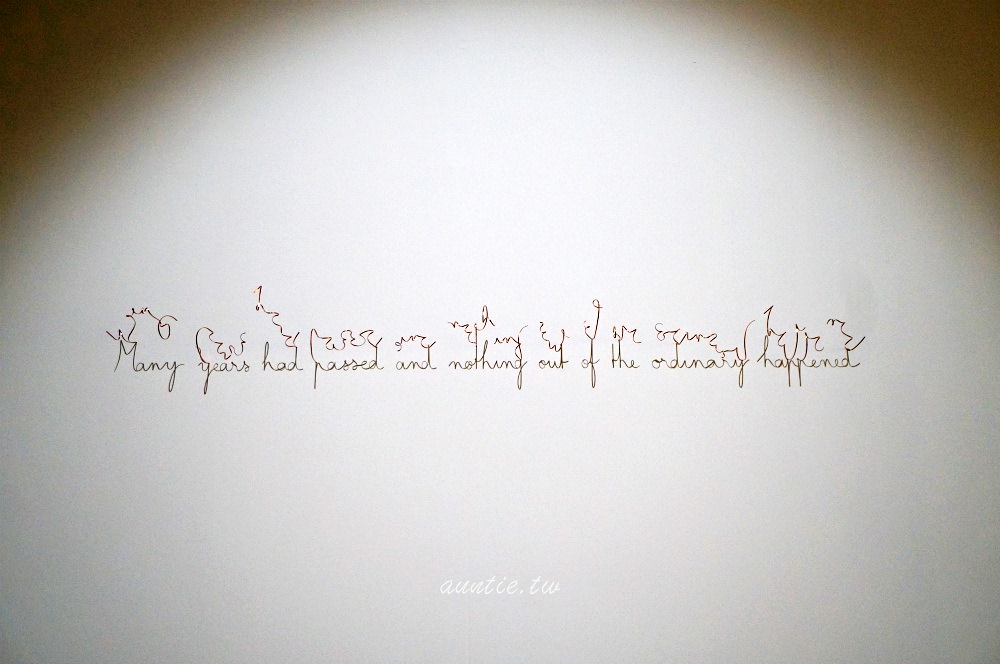 Many years had passed and nothing out of the ordinary happened
auntie.tw